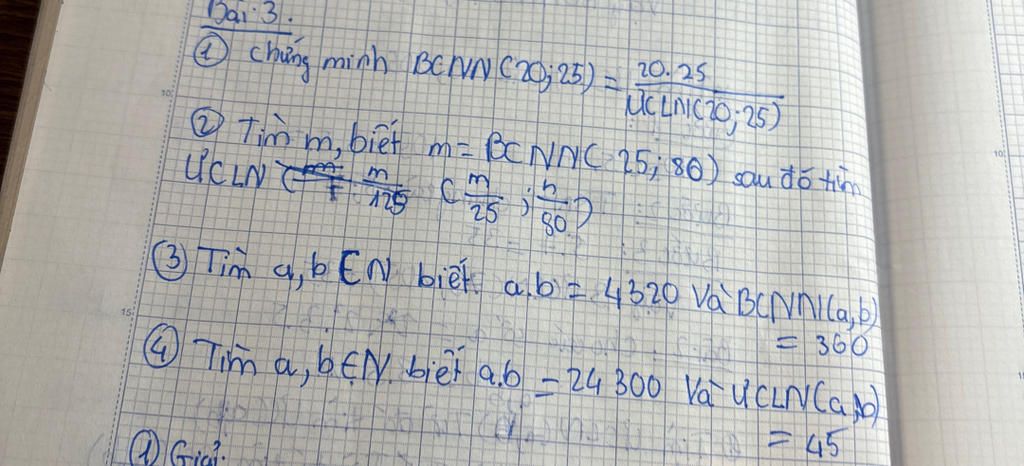 Bài 3.
① Chứng minh BCNN(20;25) = 20.25 / ƯCLN(20;25)
② Tìm m, biết m = BCNN(25;80) sau đó tìm
ƯCLN (m/25 ; n/80)
③ Tìm a,b ∈ N biết a.b = 4320 và BCNN(a,b)
= 360
④ Tìm a,b ∈ N biết a.b = 24300 và ƯCLN(a,b)
= 45
① Giải: